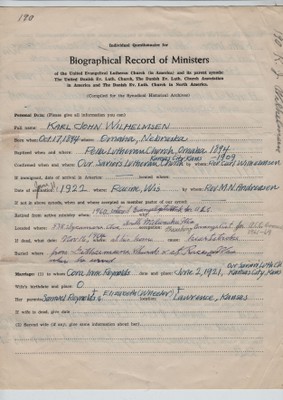 190
Individual Questionnaire for
Biographical Record of Ministers
of the United Evangelical Lutheran Church (in America) and its parent synods:
The United Danish Ev. Luth. Church, The Danish Ev. Luth. Church Association
in America and The Danish Ev. Luth. Church in North America.
(Compiled for the Synodical Historical Archives)
Personal Data: (Please give all information you can)
Full name KARL JOHN WILHELMSEN
Born when Oct 17, 1894 where Omaha, Nebraska
Baptized when and where: Pella Lutheran Church, Omaha 1894
Kansas City Kans - 1909
Confirmed when and where: Our Savior's Lutheran Church by whom: Rev Carl Wilhelmsen
If immigrated, date of arrival in America located where:
Date of ordination: June 11, 1922 where: Racine, Wis by whom: Rev M.N. Andreasen
If not in above synods, when and where accepted as member pastor of our synod:
Retired from active ministry when 1960
Located where: South Milwaukee Wis
If dead, what date: where at his home cause: heart
Buried where: from
Marriage: (1) to whom: Cora Irene Reynolds date and place: June 2, 1921, Our Savior's Luth Ch Kansas City, Kans
Wife's birthdate and place: O
Her parents: Samuel Reynolds & Elizabeth (Wheeler) located: Lawrence, Kansas
If wife is dead, give date
(2) Second wife (if any, give same information about her).